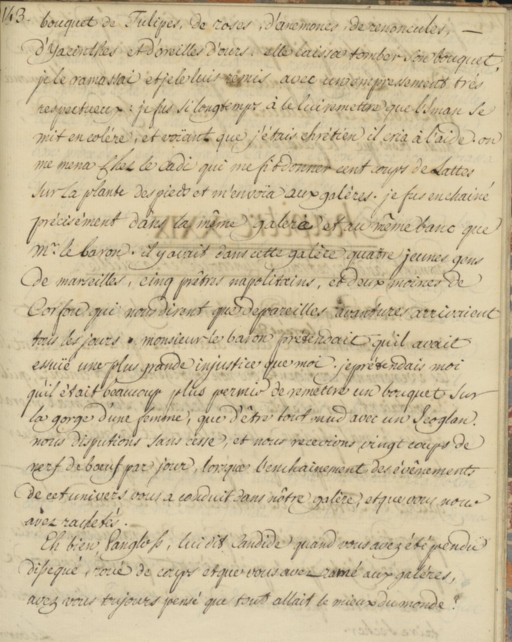 143.
bouquet de Tulipes, de roses, d'anemones, de renoncules, —
d'Yacenthes et d'oreilles d'ours. elle laissa tomber son bouquet,
je le ramassai et je le lui remis avec un empressement très
respectueux: je fus si longtemps à le lui remettre que l'Iman se
mit en colère, et voïant que j'étais chrétien il cria à l'aide. on
me mena chez le Cadi qui me fit donner cent coups de Lattes
sur la plante des pieds et m'envoïa aux galères. je fus enchainé
précisément dans la même galère et au même banc que
Mr. le baron. il y avait dans cette galère quatre jeunes gens
de marseilles, cinq prêtres napolitains, et deux moines de
Corfou qui nous dirent que de pareilles avantures arrivaient
tous les jours. monsieur le baron prétendait qu'il avait
essuïé une plus grande injustice que moi. je prétendais moi
qu'il était beaucoup plus permis de remettre un bouquet sur
la gorge d'une femme, que d'être tout nud avec un Icoglan.
nous disputions sans cesse, et nous recevions vingt coups de
nerf de bœuf par jour, lorsque l'enchainement des évènements
de cet univers vous a conduit dans nôtre galère, et que vous nous
avez rachetés.
Eh bien Pangloss, lui dit Candide quand vous avez été pendu
disséqué, roué de coups et que vous avez ramé aux galères,
avez vous toujours pensé que tout allait le mieux du monde?